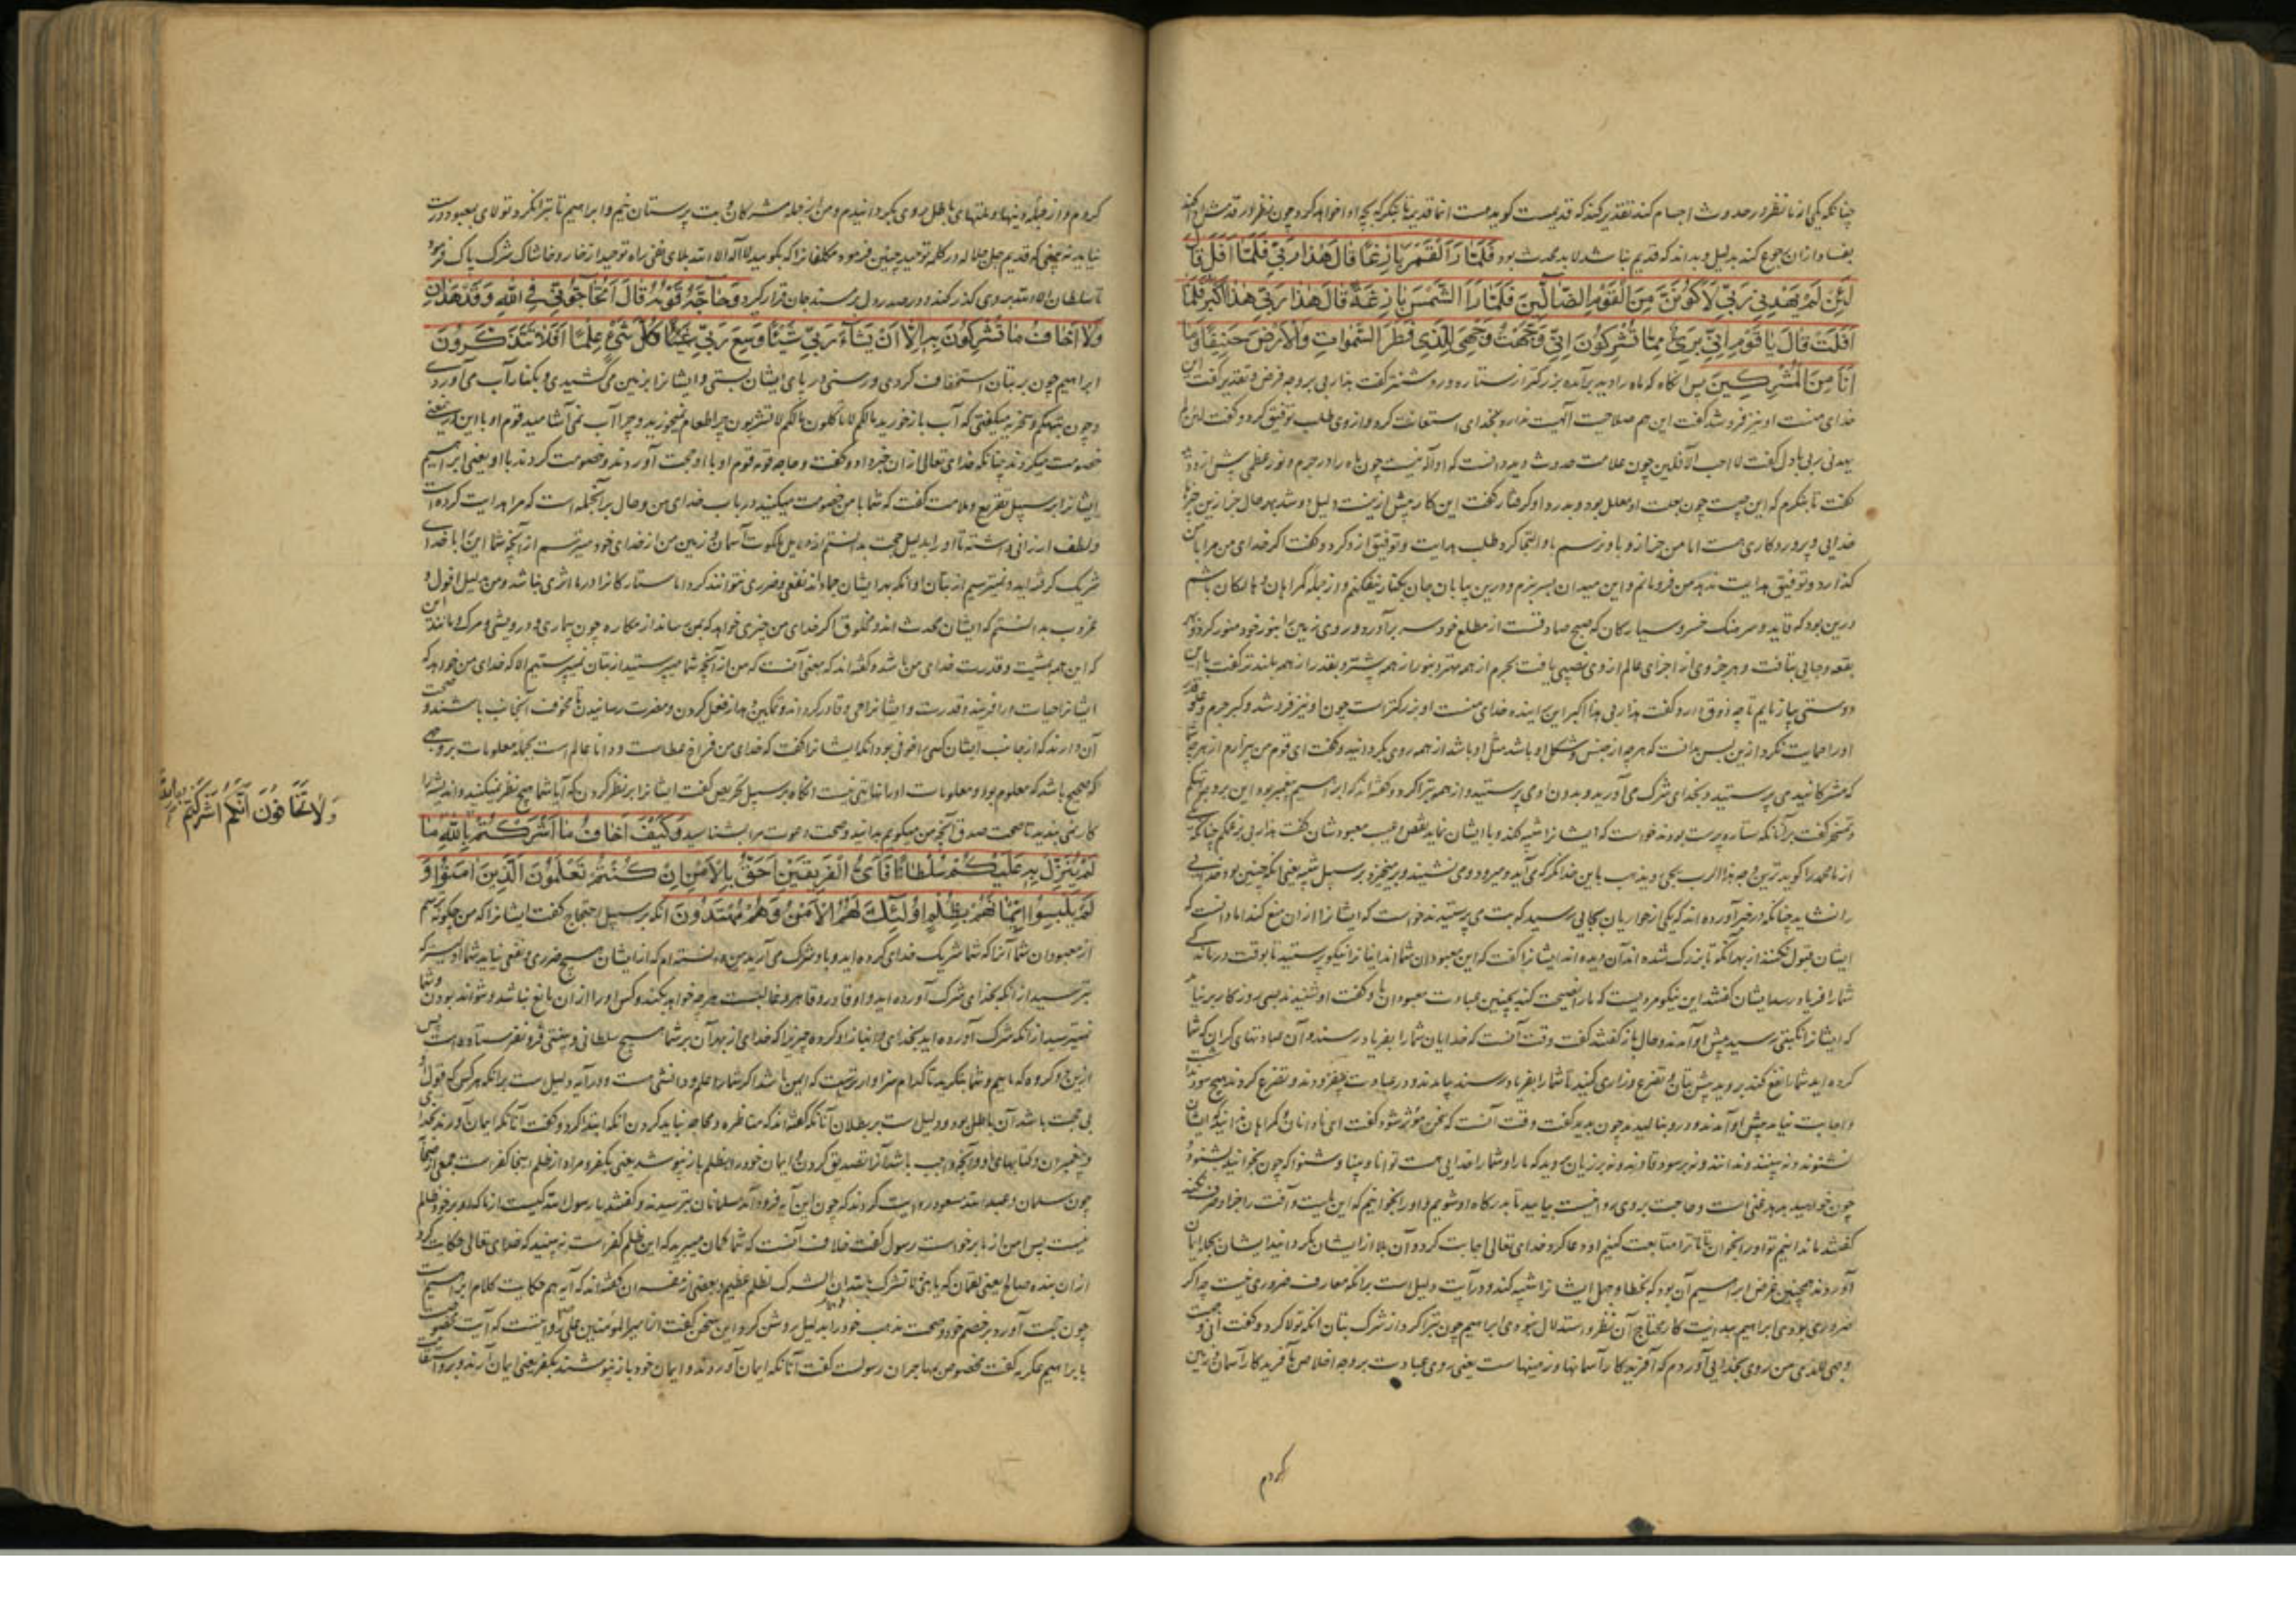 چنانکه یکی از ما نظر در حدوث اجسام کند تقدیر کند که قدیمست گوید هست انها قدیم تا بنگرم که بچه ادا خواهد کرد چون نظر در
بفساد ازان رجوع کند بدلیل و بداند که قدیم نباشد لابد محدث بود فَلَمَّا رَاَ الْقَمَرَ بَازِغًا قَالَ هٰذَا رَبِّي فَلَمَّا اَفَلَ قَالَ
لَئِنْ لَمْ يَهْدِنِي رَبِّي لَاَكُونَنَّ مِنَ الْقَوْمِ الضَّالِّينَ فَلَمَّا رَاَ الشَّمْسَ بَازِغَةً قَالَ هٰذَا رَبِّي هٰذَا اَكْبَرُ فَلَمَّا
اَفَلَتْ قَالَ يَا قَوْمِ اِنِّي بَرِيءٌ مِمَّا تُشْرِكُونَ اِنِّي وَجَّهْتُ وَجْهِيَ لِلَّذِي فَطَرَ السَّمٰوَاتِ وَالْاَرْضَ حَنِيفًا وَمَا
اَنَا مِنَ الْمُشْرِكِينَ پس انگاه که ماه را دید برآمده بزرگتر از ستاره و روشنتر گفت هذا ربی بر وجه فرض و تقدیر گفت این
خدای منست او نیز فرو شد گفت این هم صلاحیت الهیت ندارد بخدای استعانت کرد و از وی طلب توفیق کرد و گفت لئن لم
یهدنی ربی بادل گفت لا احب الآفلین چون علامت حدوث دید دانست که او اله نیست چون ماه را در جرم و نور عظمی پیش ازو دید
گفت تا بنگرم که این چیست چون بعلت او معلل بود و بدرد او گرفتار گفت این کار پیش ازینست
خدایی و پروردگاری هست اما من هنوز باو نرسم باو التجا کرد طلب هدایت و توفیق ازو کرد و گفت اگر خدای من مرا با من
گذارد و توفیق هدایت ندهد من فرو مانم و این میدان بسر نبرم و درین بیابان جان بکنار نیفکنم و از جمله گمراهان و هالکان باشم
درین بود که قاید و سرهنگ خسرو سیارگان که صبح صادقست از مطلع خود سر برآورد و روی زمین را بنور خود منور کرد و بهر
بقعه و جایی بتافت و هر جزوی از اجزای عالم از وی نصیبی یافت بجرم از همه مهتر و بنور از همه بیشتر و بقدر از همه بلندتر گفت با این
دوستی بیازمایم تا چه ذوق دارد گفت هذا ربی هذا اکبر این آینده خدای منست او بزرگتر است چون او نیز فرو شد و کبر جرم و علو قدر
اورا حمایت نکرد ازین بس بدانست که هرچه از جنس و شکل او باشد مثل او باشد از همه روی بگردانید و گفت ای قوم من بیزارم از هرچه شما
که مشرکانید می پرستید و بخدای شرک می آورید و بدون او می پرستید و از همه تبرا کرد و گفته اند که ابراهیم پیغمبر بود این بر وجه تهکم
و تمسخر گفت بر آنانکه ستاره پرست بودند خواست که ایشانرا تنبیه کند و با ایشان نماید نقص و عیب معبودشان گفت هذا ربی بزعمکم چنانکه
را نشاید چنانکه در خبر آورده اند که یکی از حواریان بجایی رسید که بت می پرستیدند خواست که ایشانرا ازان منع کند اما دانست که
ایشان قبول نکنند ازبهر آنکه تا بزرگ شده اند آن دیده اند ایشانرا گفت که این معبودان شما اند اینانرا نیکو پرستید تا بوقت درماندگی
شما را فریاد رسد ایشان گفتند این نیکو مردیست که ما را نصیحت کند بچنین عبادت معبودان ما و گفت او شنیدند بسی روزگار بر نیامد
که ایشانرا نکبتی رسید پیش او آمدند و حال باز گفتند گفت وقت آنست که خدایان شما را بفریاد رسند و آن عبادتهای گران که شما
کرده اید شما را نفع کنند بروید پیش بتان و تضرع و زاری کنید تا شما را بفریاد رسند بیامدند و در عبادت بیفزودند و تضرع کردند هیچ سود نداشت
و اجابت نیامد پیش او آمدند و درو بنالیدند چون بدید گفت وقت آنست که سخن مؤثر شود گفت ای نادانان و گمراهان بدانید که ایشان
نشنوند و نه بینند و ندانند و نه بر سود قادرند و نه بر زیان بدانید که ما را و شما را خدایی هست توانا و بینا و شنوا که چون بخوانید بشنود
چون خواهید بدهد غنی است و حاجت بروی روا نیست بیایید تا بدرگاه او شویم و او را بخوانیم که این بلیت و آفت را خدا صرف کند
گفتند ما ندانیم تو او را بخوان تا ما ترا متابعت کنیم او دعا کرد خدای تعالی اجابت کرد و آن بلا از ایشان بگردانید ایشان بجمله ایمان
آوردند همچنین غرض ابراهیم آن بود که بخطا و جهل ایشانرا تنبیه کند و در آیت دلیل است برانکه معارف ضروری نیست چه اگر
ضروری بودی ابراهیم بدانیت کار محتاج آن نظر و استدلال نبودی ابراهیم چون تبرا کرد از شرک بتان انکه تولا کرد و گفت انی وجهت
وجهی للذی من روی بخدایی آوردم که آفریدگار آسمانها و زمینهاست یعنی روی عبادت بر وجه اخلاص بآفریدگار آسمان و زمین
کردم
کردم و از جمله دینها و ملتهای باطل روی بگردانیدم و من از جمله مشرکان و بت پرستان نیم و ابراهیم تا تبرا نکرد تولای بمعبود درست
نیاید نه بینی که قدیم جل جلاله در کلمه توحید چنین فرموده مکلفانرا که بگویید لا اله الا الله بلای نفی راه توحید از خار و خاشاک شرک پاک فرمود
تا سلطان الا الله بروی گذر کند و در صدر دل بر مسند جان قرار گیرد وَحَاجَّهُ قَوْمُهُ قَالَ اَتُحَاجُّونِّي فِي اللّٰهِ وَقَدْ هَدَانِ
وَلَا اَخَافُ مَا تُشْرِكُونَ بِهِ اِلَّا اَنْ يَشَآءَ رَبِّي شَيْئًا وَسِعَ رَبِّي كُلَّ شَيْءٍ عِلْمًا اَفَلَا تَتَذَكَّرُونَ
ابراهیم چون بر بتان استخفاف کردی و رسنی در پای ایشان بستی و ایشانرا بزمین می کشیدی و بکنار آب می آوردی
و چون بتهکم و سخریه میگفتی که آب باز خورید مالکم لا تاکلون مالکم لا تشربون چرا طعام نمیخورید و چرا آب نمی آشامید قوم او با او این معنی
خصومت میکردند چنانکه خدای تعالی ازان خبر داد و گفت و حاجه قومه قوم او با او حجت آوردند و خصومت کردند با او یعنی ابراهیم
ایشانرا بر سبیل تقریع و ملامت گفت که شما با من خصومت میکنید در باب خدای من و حال بر آنجمله است که مرا هدایت کرده است
شریک کرفته اید و نمیترسیم از بتان او انکه بهر ایشان جماد اند نفعی و ضرری نتوانند کرد اما ستارگانرا در ما اثری نباشد و من بدلیل افول و
غروب بدانستم که ایشان محدث اند و مخلوق اگر خدای من چیزی خواهد که بمن رساند از مکاره چون بیماری و درویشی و مرگ و مانند این
که این همه بمشیت و قدرت خدای من باشد و گفته اند که معنی آنست که من از آنچه شما میپرستید از بتان نمیپرستیم الا که خدای من خواهد که
ایشانرا حیات درآفریند و قدرت و ایشانرا حی و قادر گرداند و تمکین دهد از فعل کردن و مضرت رسانیدن تا مخوف آنجانب باشند و صحت
آن دارند که از جانب ایشان کسی را خوفی بود انکه ایشانرا گفت که خدای من فراخ عطاست و دانا و عالم است بجمله معلومات بر وجهی
که صحیح باشد که معلوم بود و معلومات او را نهایتی نیست انگاه بر سبیل تحریض گفت ایشانرا بر نظر کردن که آیا شما هیچ نظر نمیکنید و اندیشه را
کار نمی بندید تا صحت صدق آنچه من میگویم بدانید و صحت دعوت مرا بشناسید وَكَيْفَ اَخَافُ مَا اَشْرَكْتُمْ بِاللّٰهِ مَا
لَمْ يُنَزِّلْ بِهِ عَلَيْكُمْ سُلْطَانًا فَاَيُّ الْفَرِيقَيْنِ اَحَقُّ بِالْاَمْنِ اِنْ كُنْتُمْ تَعْلَمُونَ الَّذِينَ اٰمَنُوا وَ
لَمْ يَلْبِسُوا اِيمَانَهُمْ بِظُلْمٍ اُولٰئِكَ لَهُمُ الْاَمْنُ وَهُمْ مُهْتَدُونَ انکه بر سبیل احتجاج گفت ایشانرا که من چگونه ترسم
از معبودان شما آنرا که شما شریک خدای کرده اید و باو شرک می آرید من دانسته ام که از ایشان هیچ ضرری و نفعی نیاید شما
بترسید از انکه بخدای شرک آورده اید و او قادر و قاهر و غالبست هرچه خواهد بکند و کس او را ازان مانع نباشد و نتواند بودن و شما
نمیترسید از انکه شرک آورده اید بخدای و انباز او کرده چیزیرا که خدای ازبهر آن بر شما هیچ سلطانی و بینتی فرو نفرستاده است پس
ازین دو گروه که ماییم و شما بنگرید تا کدام سزاوارتریست که ایمن باشد اگر شما را علم و دانشی هست و در آیه دلیل است برانکه هرکس که قول
بی حجت باشد آن باطل بود و دلیل است بر بطلان آنانکه گفته اند که مناظره و محاجه نباید کردن انکه ابتدا کرد و گفت آنانکه ایمان آوردند بخدای
و پیغمبران و کتابهای او و آنچه واجب باشد آنرا تصدیق کردن و ایمان خود را بظلم باز نپوشند یعنی بکفر و مراد از ظلم اینجا کفر است جمعی از صحابه
چون سلمان و عبدالله مسعود روایت کردند که چون این آیه فرود آمد مسلمانان بترسیدند و گفتند یا رسول الله کیست از ما که او بر خود ظلم
نیست پس امن از ما برخواست رسول گفت خلاف آنست که شما گمان میبرید که این ظلم کفر است نه بینید که خدای تعالی حکایت کرد
ازان بنده صالح یعنی لقمان که یا بنی لا تشرک بالله ان الشرک لظلم عظیم و بعضی از مفسران گفته اند که آیه هم حکایت کلام ابراهیم است
چون حجت آورد بر خصم خود و صحت مذهب خود را بدلیل روشن کرد و این سخن گفت از امیر المؤمنین علی روایتست که آیت مخصوص است
بابراهیم عکرمه گفت مخصوص بمهاجران رسولست گفت آنانکه ایمان آوردند و ایمان خود باز نپوشند بکفر یعنی ایمان آرند و برو استقامت
وَلَا تَخَافُونَ اَنَّكُمْ اَشْرَكْتُمْ بِاللّٰهِ